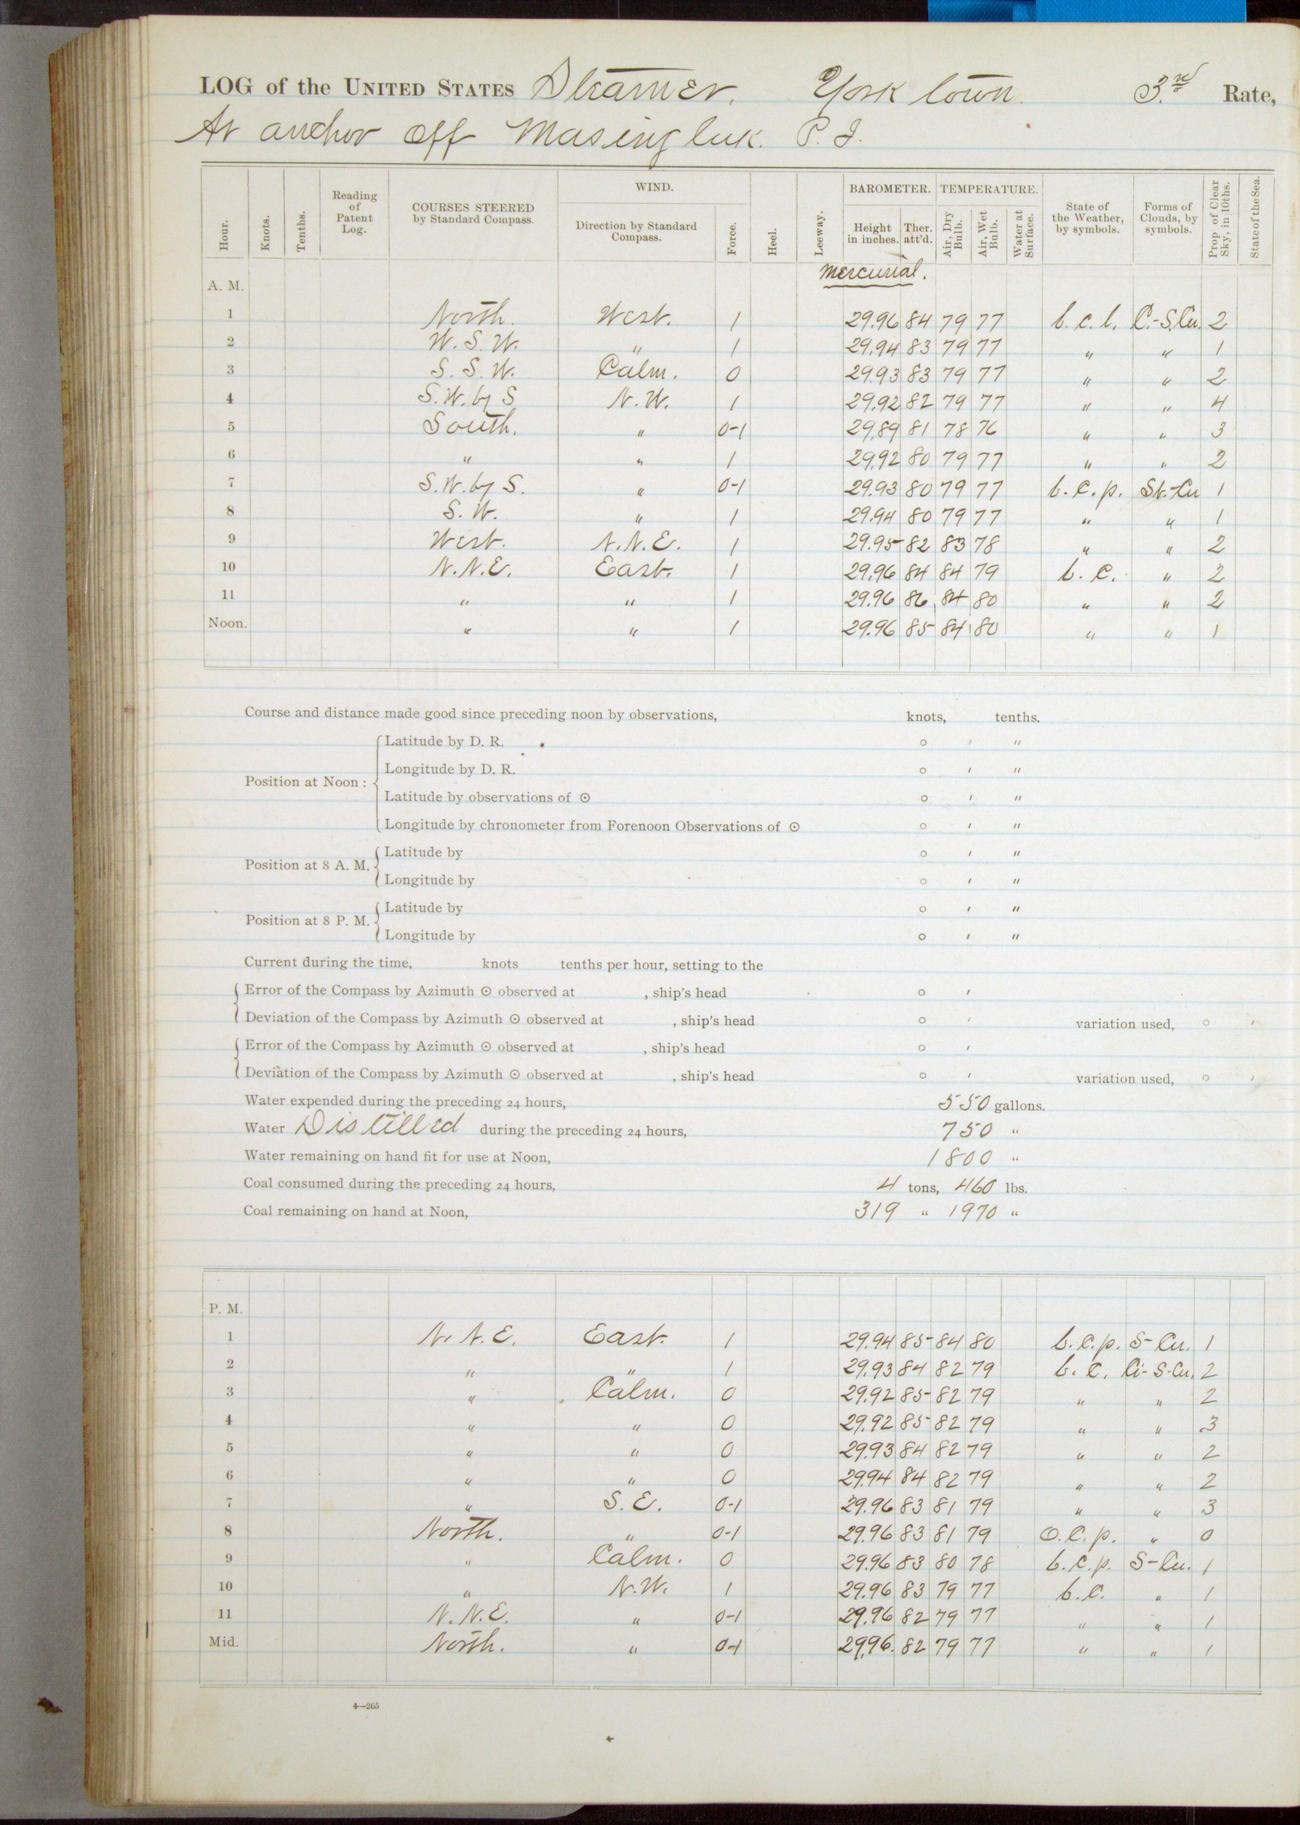 LOG of the UNITED STATES Steamer. York town. 3.rd Rate,
At anchor off Masingluk. P. I.
Hour. Knots. Tenths. Reading of Patent Log. COURSES STEERED by Standard Compass. WIND. Direction by Standard Compass. Force. Heel. Leeway. BAROMETER. Height in inches. Ther. att'd. TEMPERATURE. Air, Dry Bulb. Air, Wet Bulb. Water at Surface. State of the Weather, by symbols. Forms of Clouds, by symbols. Prop. of Clear Sky, in 10ths. State of the Sea.
Mercurial.
A. M.
1 North West. 1 29.96 84 79 77 b. c. l. C.-S.Cu. 2
2 W. S. W. " 1 29.94 83 79 77 " " 1
3 S. S. W. Calm. 0 29.93 83 79 77 " " 2
4 S. W. by S N. W. 1 29.92 82 79 77 " " 4
5 South. " 0-1 29.89 81 78 76 " " 3
6 " " 1 29.92 80 79 77 " " 2
7 S. W. by S. " 0-1 29.93 80 79 77 b. c. p. St.-Cu 1
8 S. W. " 1 29.94 80 79 77 " " 1
9 West. N. N. E. 1 29.95 82 83 78 " " 2
10 N. N. E. East. 1 29.96 84 84 79 b. c. " 2
11 " " 1 29.96 86 84 80 " " 2
Noon. " " 1 29.96 85 84 80 " " 1
Course and distance made good since preceding noon by observations, knots, tenths.
Position at Noon: Latitude by D. R. ° ′ ″
Longitude by D. R. ° ′ ″
Latitude by observations of ☉ ° ′ ″
Longitude by chronometer from Forenoon Observations of ☉ ° ′ ″
Position at 8 A. M. Latitude by ° ′ ″
Longitude by ° ′ ″
Position at 8 P. M. Latitude by ° ′ ″
Longitude by ° ′ ″
Current during the time, knots tenths per hour, setting to the
Error of the Compass by Azimuth ☉ observed at , ship's head ° ′
Deviation of the Compass by Azimuth ☉ observed at , ship's head ° ′ variation used, ° ′
Error of the Compass by Azimuth ☉ observed at , ship's head ° ′
Deviation of the Compass by Azimuth ☉ observed at , ship's head ° ′ variation used, ° ′
Water expended during the preceding 24 hours, 550 gallons.
Water Distilled during the preceding 24 hours, 750 "
Water remaining on hand fit for use at Noon, 1800 "
Coal consumed during the preceding 24 hours, 4 tons, 460 lbs.
Coal remaining on hand at Noon, 319 " 1970 "
P. M.
1 N. N. E. East. 1 29.94 85 84 80 b. c. p. S-Cu. 1
2 " " 1 29.93 84 82 79 b. c. Ci-S-Cu. 2
3 " Calm. 0 29.92 85 82 79 " " 2
4 " " 0 29.92 85 82 79 " " 3
5 " " 0 29.93 84 82 79 " " 2
6 " " 0 29.94 84 82 79 " " 2
7 " S. E. 0-1 29.96 83 81 79 " " 3
8 North. " 0-1 29.96 83 81 79 o. c. p. " 0
9 " Calm. 0 29.96 83 80 78 b. c. p. S-Cu. 1
10 " N. W. 1 29.96 83 79 77 b. c. " 1
11 N. N. E. " 0-1 29.96 82 79 77 " " 1
Mid. North. " 0-1 29.96. 82 79 77 " " 1
4—265